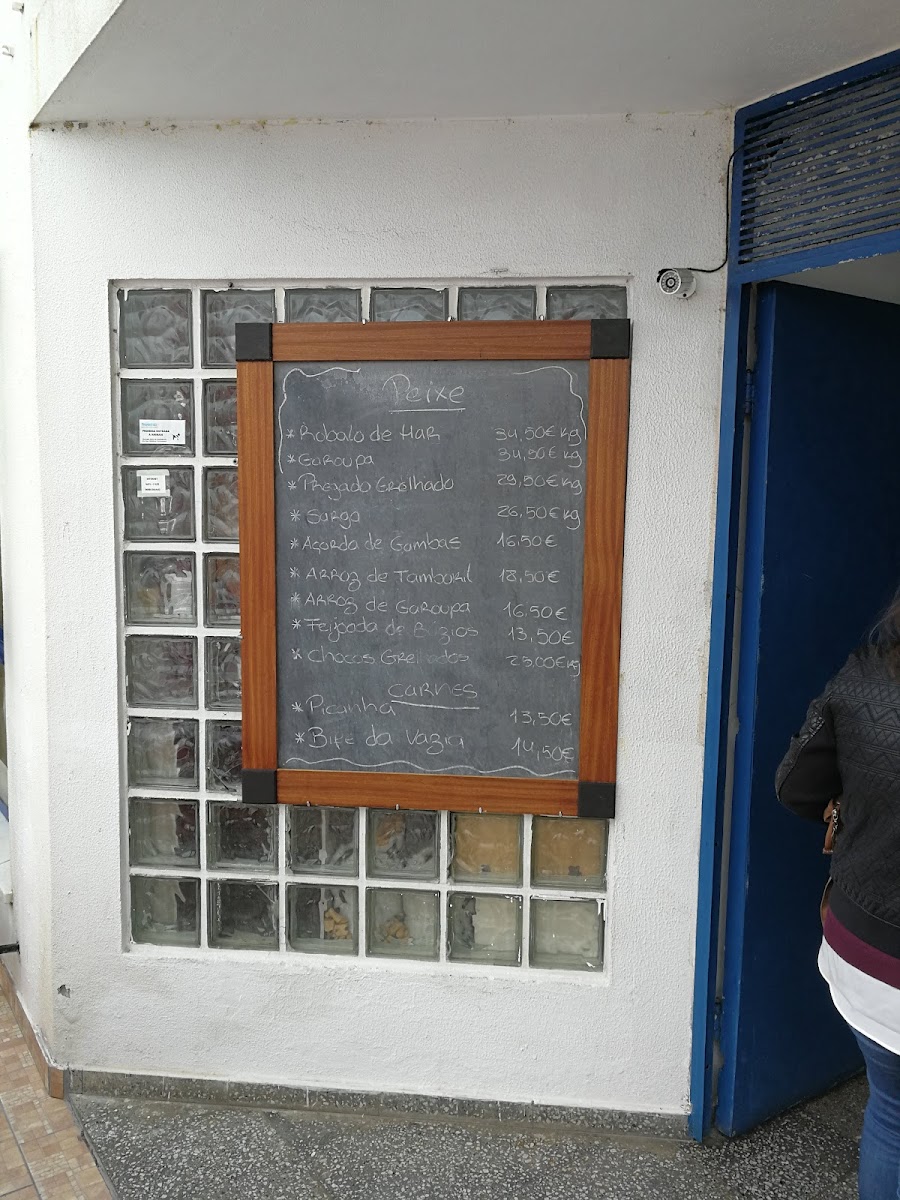 Peixe
* Robalo de Mar 34,50€ kg
* Garoupa 34,50€ kg
* Pregado Grelhado 29,50€ kg
* Sargo 26,50€ kg
* Açorda de Gambas 16,50€
* Arroz de Tamboril 18,50€
* Arroz de Garoupa 16,50€
* Feijoada de Búzios 13,50€
* Chocos Grelhados 25,00€ kg
Carnes
* Picanha 13,50€
* Bife da Vazia 14,50€